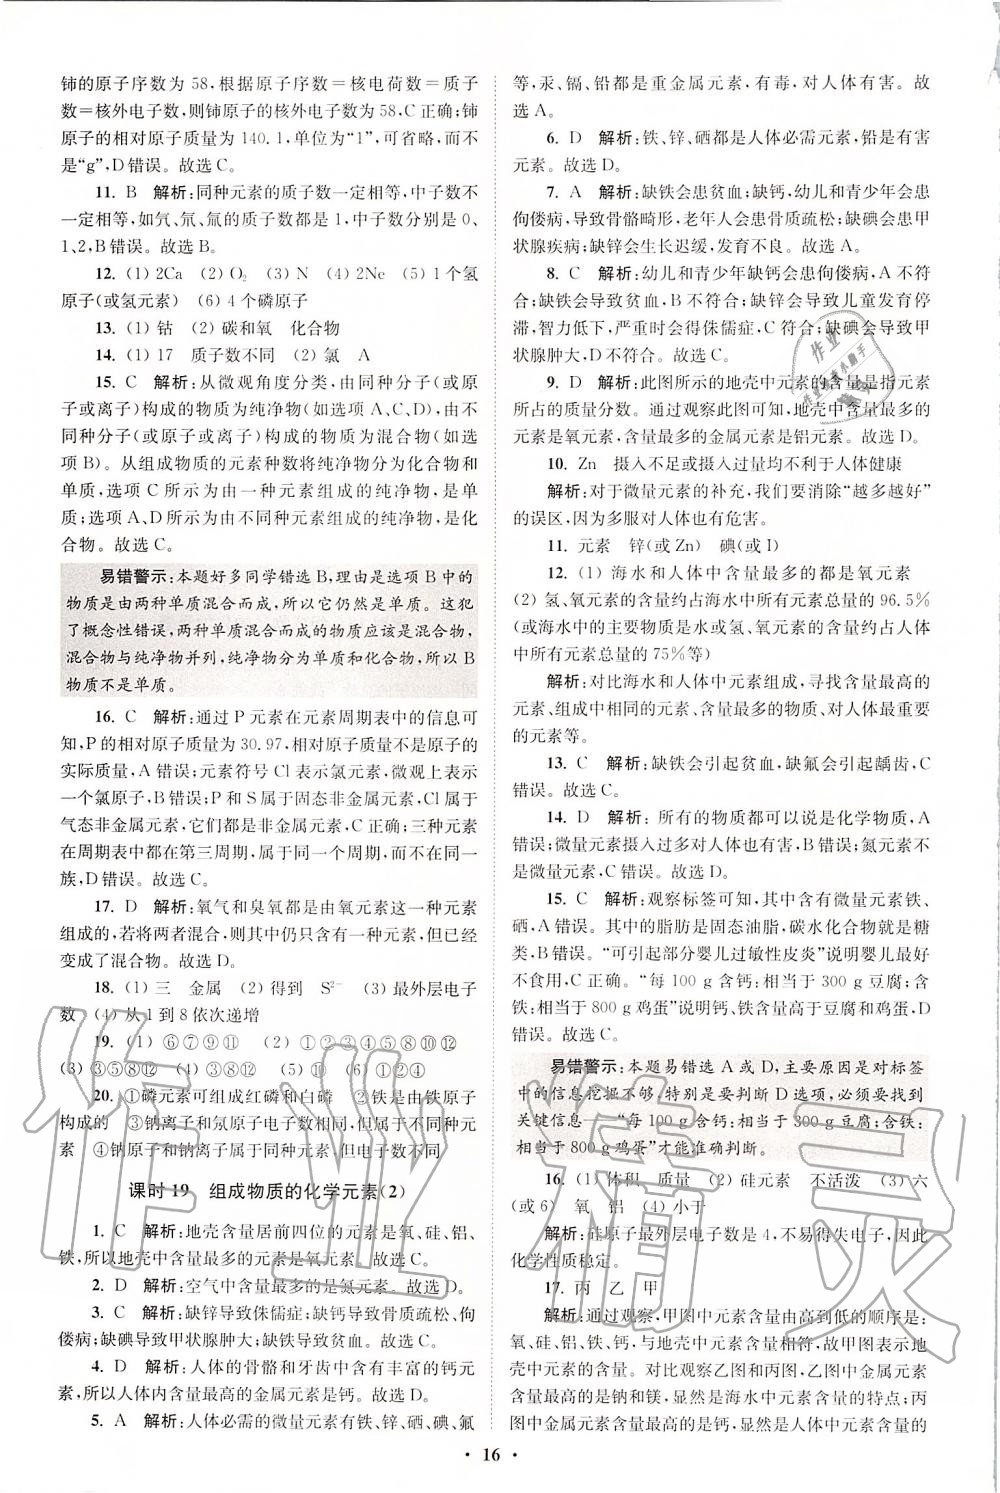 铈的原子序数为 58,根据原子序数＝核电荷数＝质子
数＝核外电子数,则铈原子的核外电子数为 58,C 正确;铈
原子的相对原子质量为 140.1,单位为“1”,可省略,而不
是“g”,D 错误。故选 C。
11. B 解析:同种元素的质子数一定相等,中子数不
一定相等,如氕、氘、氚的质子数都是 1,中子数分别是 0、
1、2,B 错误。故选 B。
12. (1) 2Ca (2) O₂ (3) N (4) 2Ne (5) 1 个氢
原子(或氢元素) (6) 4 个磷原子
13. (1) 钴 (2) 碳和氧 化合物
14. (1) 17 质子数不同 (2) 氯 A
15. C 解析:从微观角度分类,由同种分子(或原
子或离子)构成的物质为纯净物(如选项 A、C、D),由不
同种分子(或原子或离子)构成的物质为混合物(如选
项 B)。从组成物质的元素种数将纯净物分为化合物和
单质,选项 C 所示为由一种元素组成的纯净物,是单
质;选项 A、D 所示为由不同种元素组成的纯净物,是化
合物。故选 C。
易错警示:本题好多同学错选 B,理由是选项 B 中的
物质是由两种单质混合而成,所以它仍然是单质。这犯
了概念性错误,两种单质混合而成的物质应该是混合物,
混合物与纯净物并列,纯净物分为单质和化合物,所以 B
物质不是单质。
16. C 解析:通过 P 元素在元素周期表中的信息可
知,P 的相对原子质量为 30.97,相对原子质量不是原子的
实际质量,A 错误;元素符号 Cl 表示氯元素,微观上表示
一个氯原子,B 错误;P 和 S 属于固态非金属元素,Cl 属于
气态非金属元素,它们都是非金属元素,C 正确;三种元素
在周期表中都在第三周期,属于同一个周期,而不在同一
族,D 错误。故选 C。
17. D 解析:氧气和臭氧都是由氧元素这一种元素
组成的,若将两者混合,则其中仍只含有一种元素,但已经
变成了混合物。故选 D。
18. (1) 三 金属 (2) 得到 S²⁻ (3) 最外层电子
数 (4) 从 1 到 8 依次递增
19. (1) ⑥⑦⑨⑪ (2) ①②③④⑤⑧⑩⑫
(3) ③⑤⑧⑫ (4) ①②④⑩ (5) ⑩ (6) ①②④
20. ①磷元素可组成红磷和白磷 ②铁是由铁原子
构成的 ③钠离子和氖原子电子数相同,但属于不同种元
素 ④钠原子和钠离子属于同种元素,但电子数不同
课时 19 组成物质的化学元素(2)
1. C 解析:地壳含量居前四位的元素是氧、硅、铝、
铁,所以地壳中含量最多的元素是氧元素。故选 C。
2. D 解析:空气中含量最多的是氮元素。故选 D。
3. C 解析:缺锌导致侏儒症;缺钙导致骨质疏松、佝
偻病;缺碘导致甲状腺肿大;缺铁导致贫血。故选 C。
4. D 解析:人体的骨骼和牙齿中含有丰富的钙元
素,所以人体内含量最高的金属元素是钙。故选 D。
5. A 解析:人体必需的微量元素有铁、锌、硒、碘、氟
等,汞、镉、铅都是重金属元素,有毒,对人体有害。故
选 A。
6. D 解析:铁、锌、硒都是人体必需元素,铅是有害
元素。故选 D。
7. A 解析:缺铁会患贫血;缺钙,幼儿和青少年会患
佝偻病,导致骨骼畸形,老年人会患骨质疏松;缺碘会患甲
状腺疾病;缺锌会生长迟缓,发育不良。故选 A。
8. C 解析:幼儿和青少年缺钙会患佝偻病,A 不符
合;缺铁会导致贫血,B 不符合;缺锌会导致儿童发育停
滞,智力低下,严重时会得侏儒症,C 符合;缺碘会导致甲
状腺肿大,D 不符合。故选 C。
9. D 解析:此图所示的地壳中元素的含量是指元素
所占的质量分数。通过观察此图可知,地壳中含量最多的
元素是氧元素,含量最多的金属元素是铝元素。故选 D。
10. Zn 摄入不足或摄入过量均不利于人体健康
解析:对于微量元素的补充,我们要消除“越多越好”
的误区,因为多服对人体也有危害。
11. 元素 锌(或 Zn) 碘(或 I)
12. (1) 海水和人体中含量最多的都是氧元素
(2) 氢、氧元素的含量约占海水中所有元素总量的 96.5%
(或海水中的主要物质是水或氢、氧元素的含量约占人体
中所有元素总量的 75%等)
解析:对比海水和人体中元素组成,寻找含量最高的
元素、组成中相同的元素、含量最多的物质、对人体最重要
的元素等。
13. C 解析:缺铁会引起贫血,缺氟会引起龋齿,C
错误。故选 C。
14. D 解析:所有的物质都可以说是化学物质,A
错误;微量元素摄入过多对人体也有害,B 错误;氮元素不
是微量元素,C 错误。故选 D。
15. C 解析:观察标签可知,其中含有微量元素铁、
硒,A 错误。其中的脂肪是固态油脂,碳水化合物就是糖
类,B 错误。“可引起部分婴儿过敏性皮炎”说明婴儿最好
不食用,C 正确。“每 100 g 含钙:相当于 300 g 豆腐;含
铁:相当于 800 g 鸡蛋”说明钙、铁含量高于豆腐和鸡蛋,D
错误。故选 C。
易错警示:本题易错选 A 或 D,主要原因是对标签
中的信息挖掘不够,特别是要判断 D 选项,必须要找到
关键信息——“每 100 g 含钙:相当于 300 g 豆腐;含铁:
相当于 800 g 鸡蛋”才能准确判断。
16. (1) 体积 质量 (2) 硅元素 不活泼 (3) 六
(或 6) 氧 铝 (4) 小于
解析:硅原子最外层电子数是 4,不易得失电子,因此
化学性质稳定。
17. 丙 乙 甲
解析:通过观察,甲图中元素含量由高到低的顺序是:
氧、硅、铝、铁、钙,与地壳中元素含量相符,故甲图表示地
壳中元素的含量。对比观察乙图和丙图,乙图中金属元素
含量最高的是钠和镁,显然是海水中元素含量的特点;丙
图中金属元素含量最高的是钙,显然是人体中元素含量的
• 16 •
作业精灵